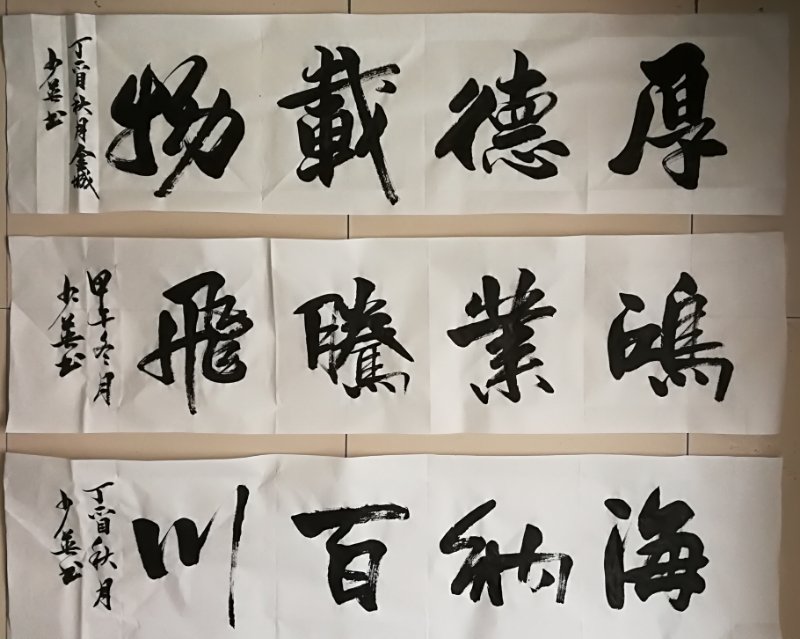 厚德載物
丁酉秋月金城
少英书
鴻業騰飛
甲午冬月
少英书
海納百川
丁酉秋月
少英书